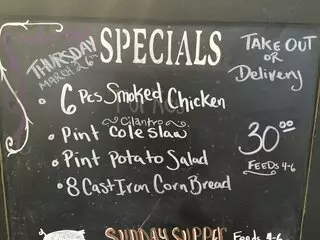 SPECIALS
THURSDAY
MARCH 26th
TAKE OUT
OR
Delivery
• 6 Pcs Smoked Chicken
Cilantro
• Pint Coleslaw
• Pint Potato Salad
• 8 Cast Iron Corn Bread
30.00
FEEDS 4-6
SUNDAY SUPPER
Feeds 4-6